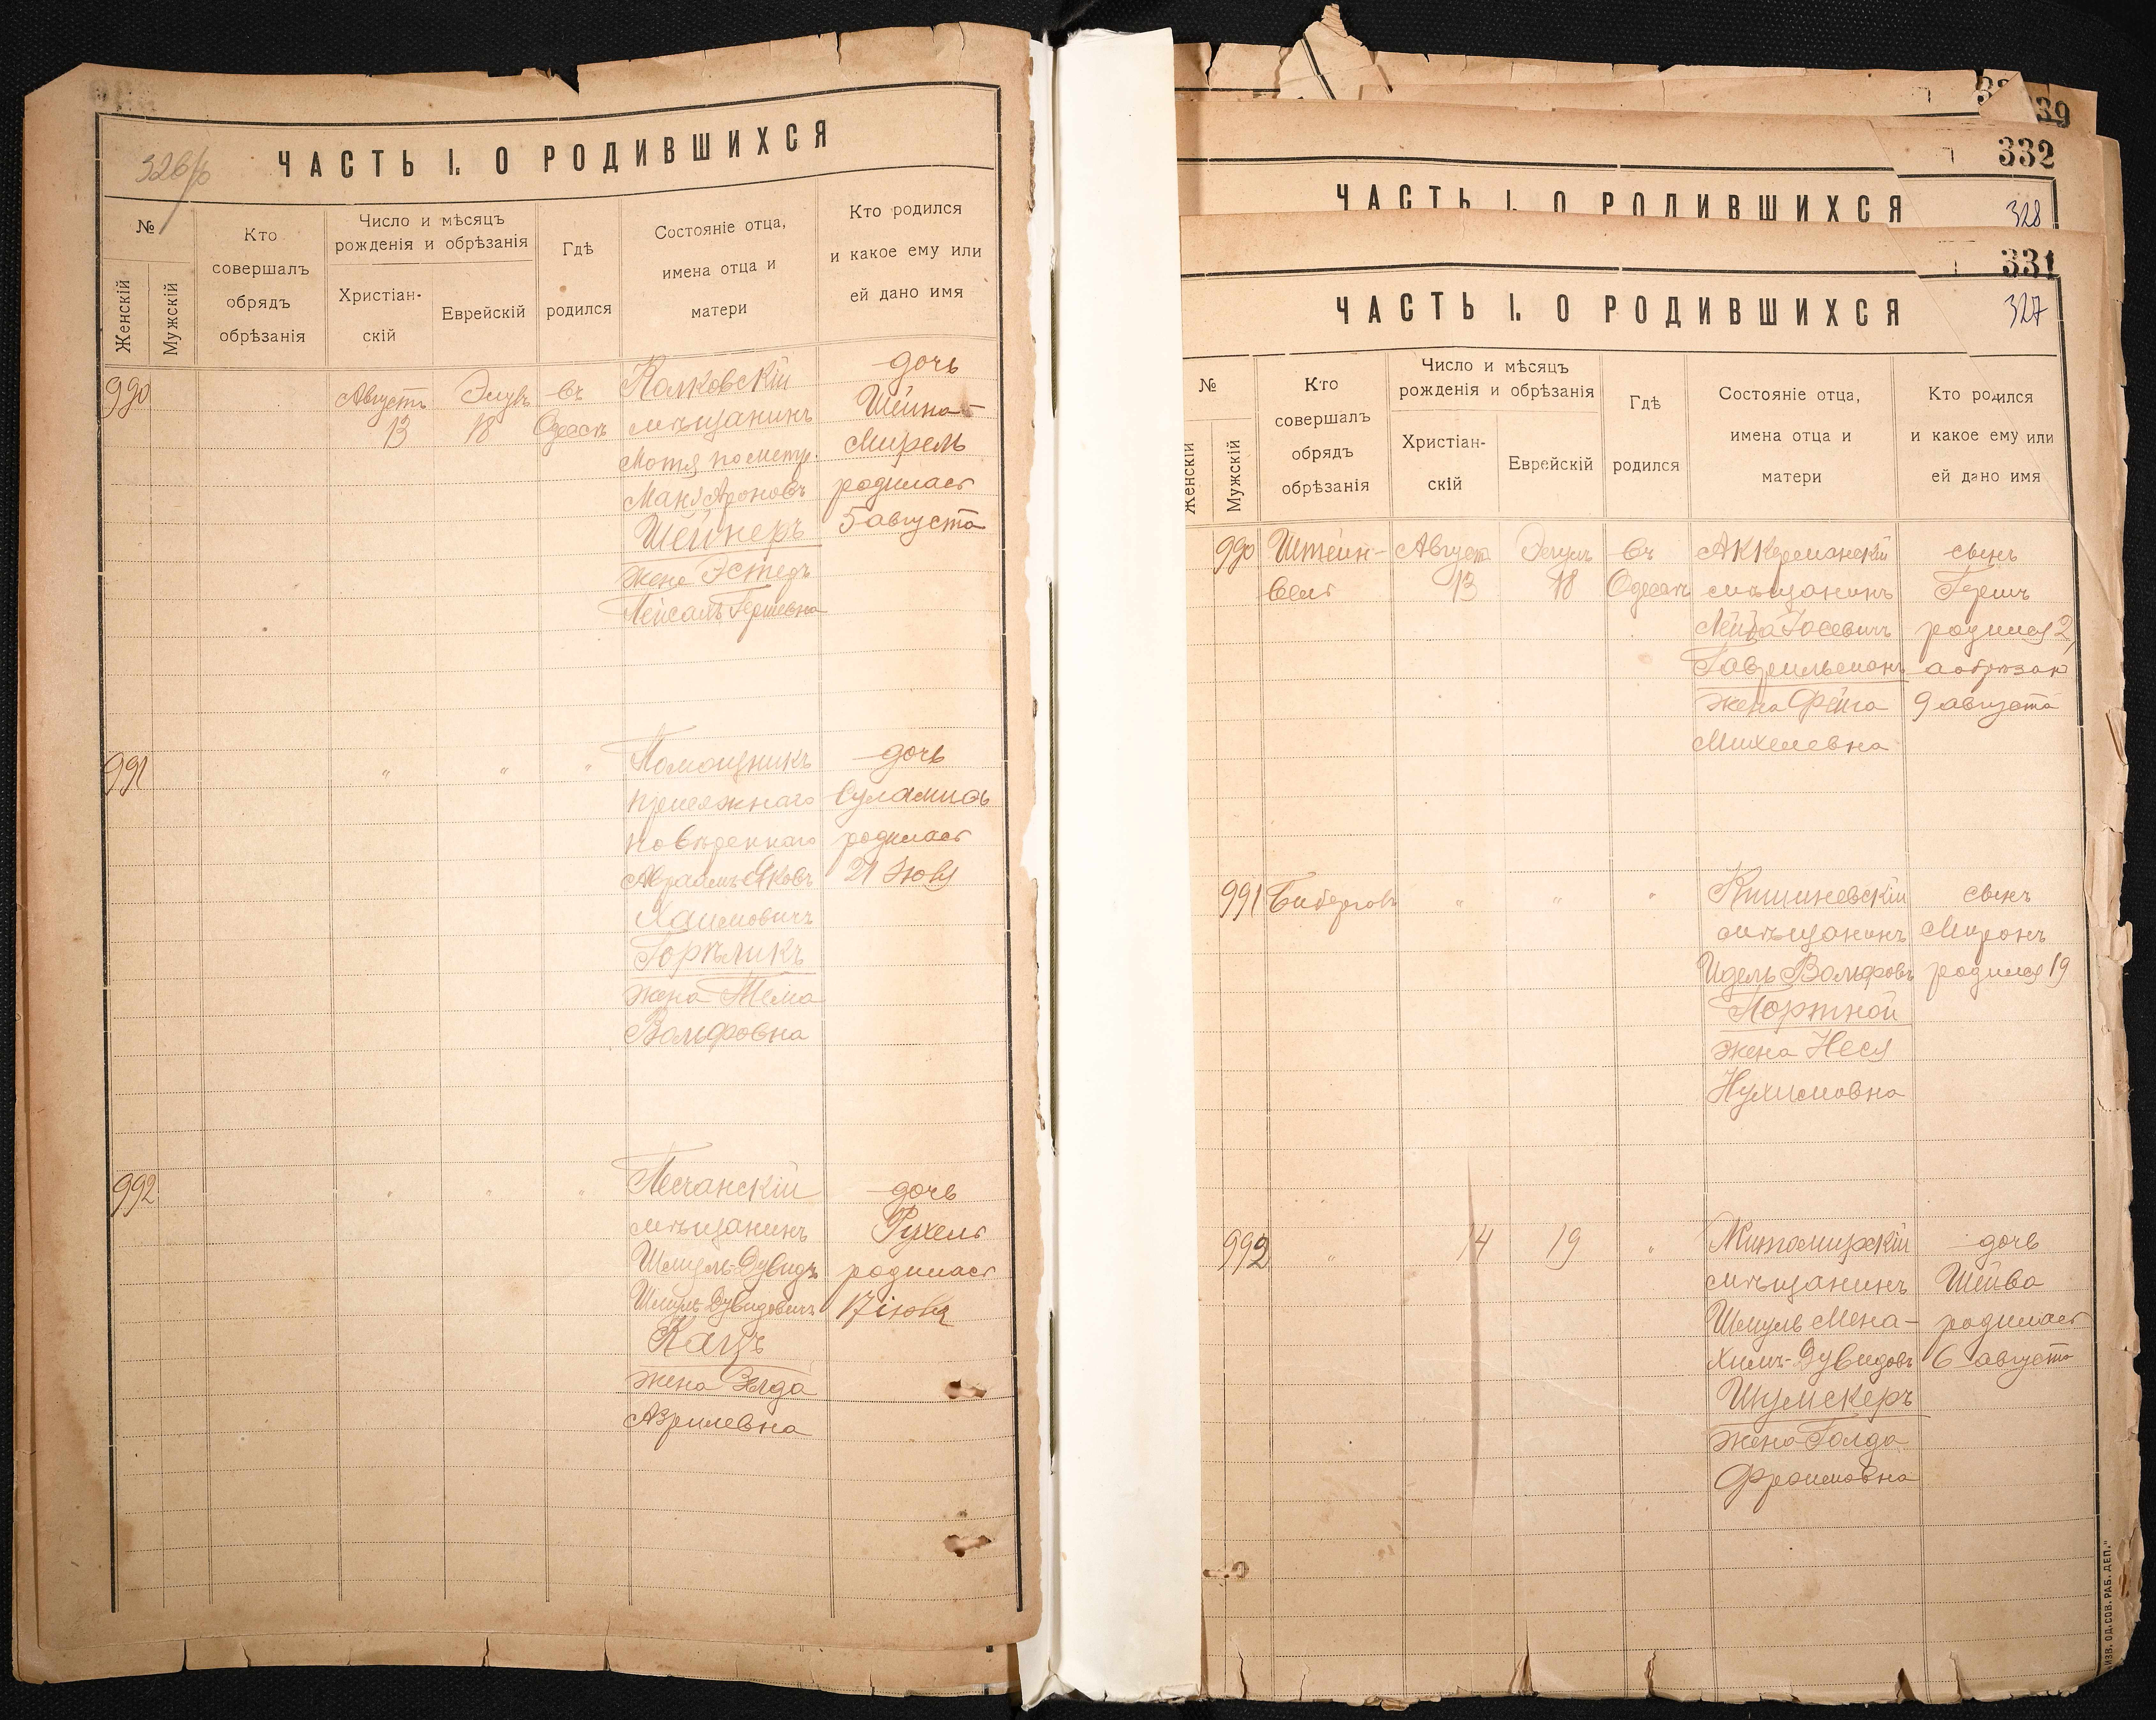 326/об
ЧАСТЬ I. О РОДИВШИХСЯ
№
Женскій
Мужскій
Кто
совершалъ
обрядъ
обрѣзанія
Число и мѣсяцъ
рожденія и обрѣзанія
Христіан-
скій
Еврейскій
Гдѣ
родился
Состояніе отца,
имена отца и
матери
Кто родился
и какое ему или
ей дано имя
990
Августъ
13
Элулъ
18
въ
Одессѣ
мѣщанинъ
Мотя по метр.
Шейнеръ
жена Эстеръ
Лейсаль Гершевна
дочь
Шейна-
Мирель
родилась
5 августа
991
" " "
Помощникъ
присяжнаго
повѣреннаго
Абраамъ Яковъ
Хаимовичъ
Горѣликъ
жена Тема
Вольфовна
дочь
Суламиѳь
родилась
21 Юля
992
" " "
Песчанскій
мѣщанинъ
Шмуль-Дувидъ
Шмуль-Дувидовичъ
Кацъ
жена Элда
Азрилевна
дочь
Рухель
родилась
17 іюля
39
332
ЧАСТЬ I. О РОДИВШИХСЯ
328
331
ЧАСТЬ I. О РОДИВШИХСЯ
327
№
Женскій
Мужскій
Кто
совершалъ
обрядъ
обрѣзанія
Число и мѣсяцъ
рожденія и обрѣзанія
Христіан-
скій
Еврейскій
Гдѣ
родился
Состояніе отца,
имена отца и
матери
Кто родился
и какое ему или
ей дано имя
990
Штейн-
Августъ
13
Элулъ
18
въ
Одессѣ
Аккерманскій
мѣщанинъ
Лейба Іосевичъ
Гаврильманъ
жена Фейга
Михелевна
сынъ
Гершъ
родился 2,
а обрѣзанъ
9 августа
991
Бибергов
" " "
Кишиневскій
мѣщанинъ
Идель Вольфовъ
Портной
жена Неся
Нухимовна
сынъ
Миронъ
родился 19
992
"
14
19
"
Житомирскій
мѣщанинъ
Шмуль Мена-
химъ-Дувидовъ
Шумскеръ
жена Голда
Фроимовна
дочь
Шейва
родилась
6 августа
ИЗВ. ОД. СОВ. РАБ. ДЕП."